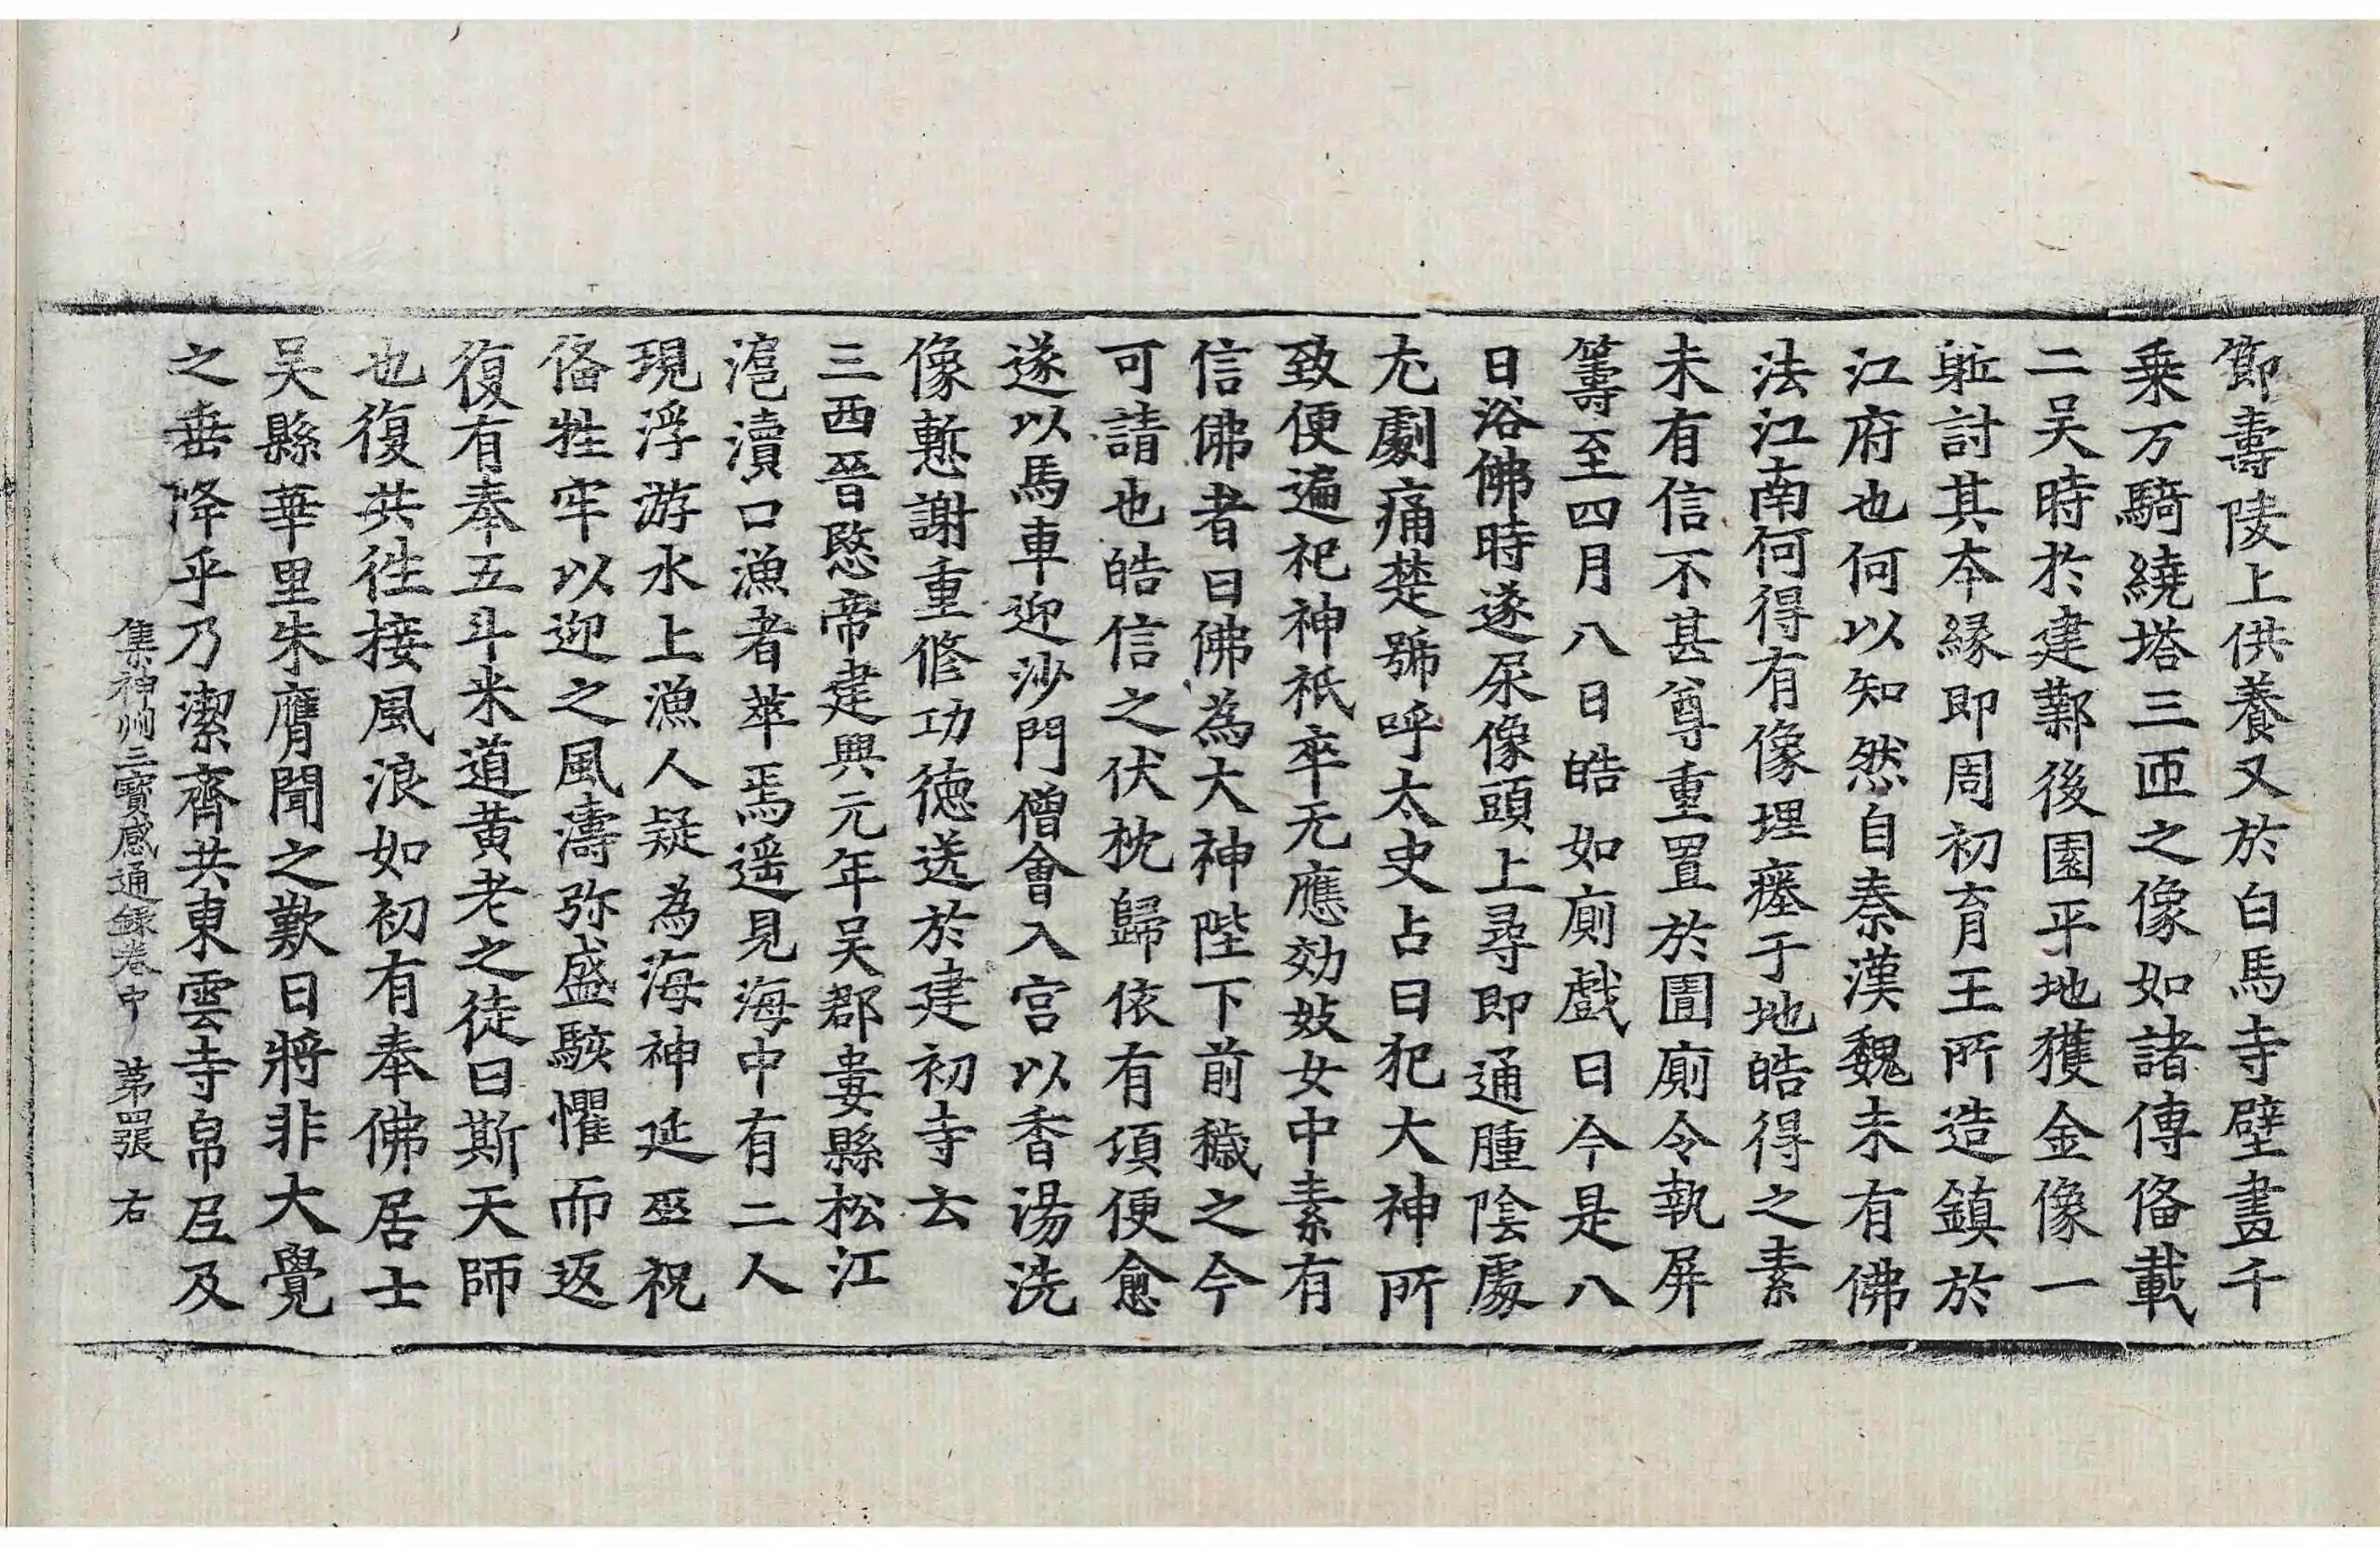 節壽陵上供養又於白馬寺壁畫千
乗万騎繞塔三匝之像如諸傳俻載
二吴時於建鄴後園平地獲金像一
軀討其夲縁即周初育王所造鎮於
江府也何以知然自秦漢魏未有佛
法江南何得有像埋瘞于地皓得之素
未有信不甚尊重置於圊廁令執屏
籌至四月八日皓如廁戲曰今是八
日浴佛時遂尿像頭上尋即通腫陰處
尤劇痛楚號呼太史占曰犯大神所
致便遍祀神祇卒无應効妓女中素有
信佛者曰佛為大神陛下前穢之今
可請也皓信之伏枕歸依有頃便愈
遂以馬車迎沙門僧會入宫以香湯洗
像慙謝重修功徳送於建初寺云
三西晉愍帝建興元年吴郡婁縣松江
滬瀆口漁者萃焉遥見海中有二人
現浮游水上漁人疑為海神延巫祝
俻牲牢以迎之風濤弥盛駭懼而返
復有奉五斗米道黄老之徒曰斯天師
也復共徃接風浪如初有奉佛居士
吴縣華里朱膺聞之歎曰將非大覺
之垂降乎乃潔齊共東雲寺帛尼及
集神州三寶感通録卷中 苐四張 右